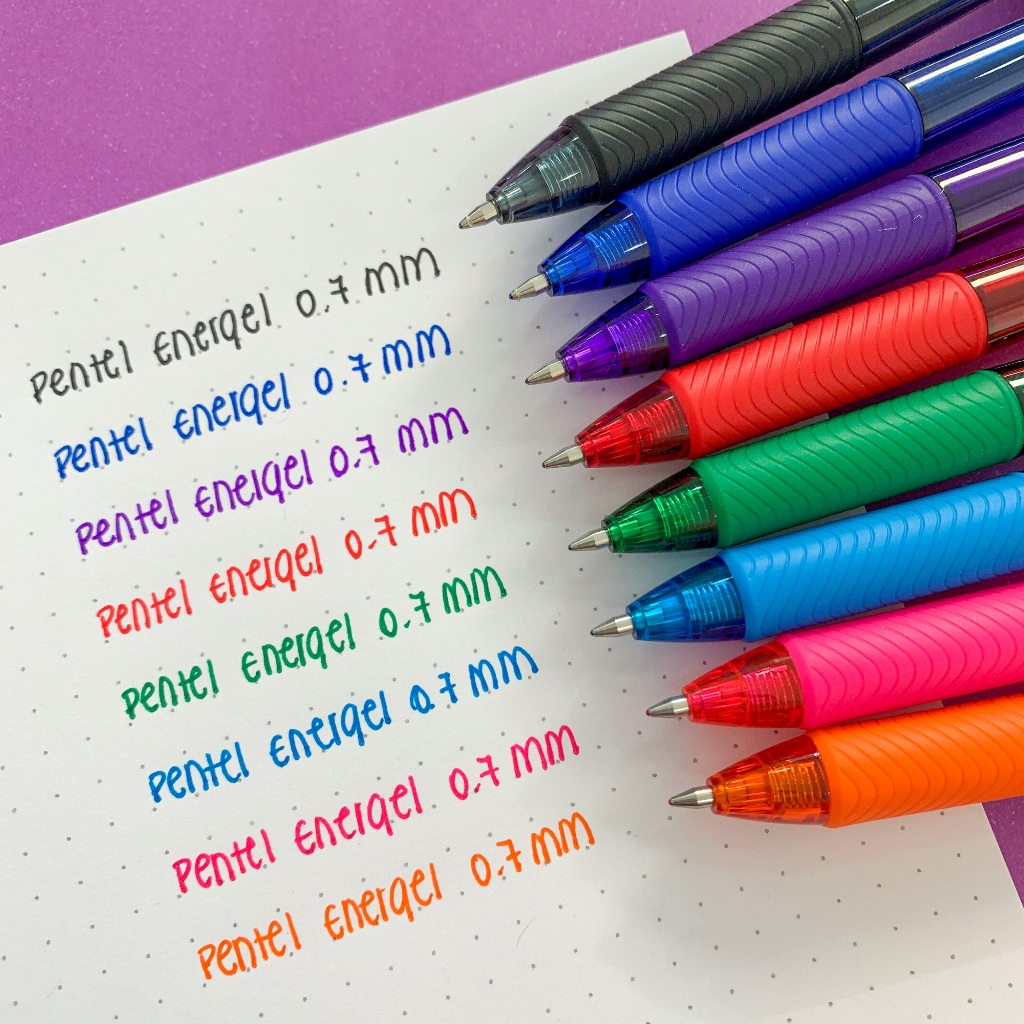 Pentel Energel 0.7 mm
Pentel Energel 0.7 mm
Pentel Energel 0.7 mm
Pentel Energel 0.7 mm
Pentel Energel 0.7 mm
Pentel Energel 0.7 mm
Pentel Energel 0.7 mm
Pentel Energel 0.7 mm